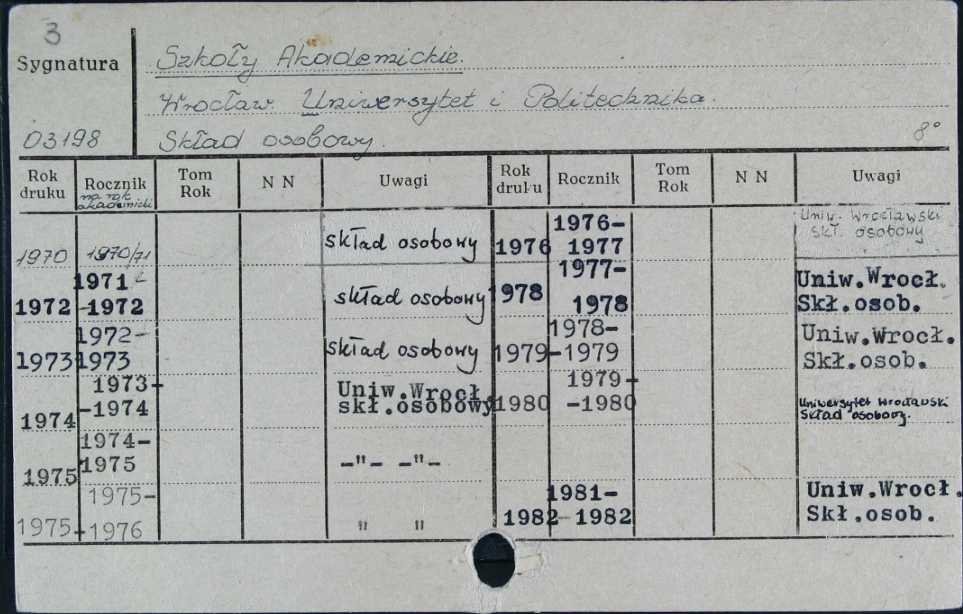 3
Sygnatura
Szkoły Akademickie.
Wrocław. Uniwersytet i Politechnika.
03198 Skład osobowy. 8°
Rok druku Rocznik na rok akademicki Tom Rok N N Uwagi Rok druku Rocznik Tom Rok N N Uwagi
1970 1970/71 skład osobowy
1972 1971-1972 skład osobowy
1973 1972-1973 skład osobowy
1974 1973-1974 Uniw.Wrocł. skł.osobowy
1975 1974-1975 -"- -"-
1975 1975-1976 " "
1976 1976-1977 Uniw. Wrocławski skł. osobowy
1978 1977-1978 Uniw.Wrocł. Skł.osob.
1979 1978-1979 Uniw.Wrocł. Skł.osob.
1980 1979-1980 Uniwersytet Wrocławski Skład osobowy.
1982 1981-1982 Uniw.Wrocł. Skł.osob.